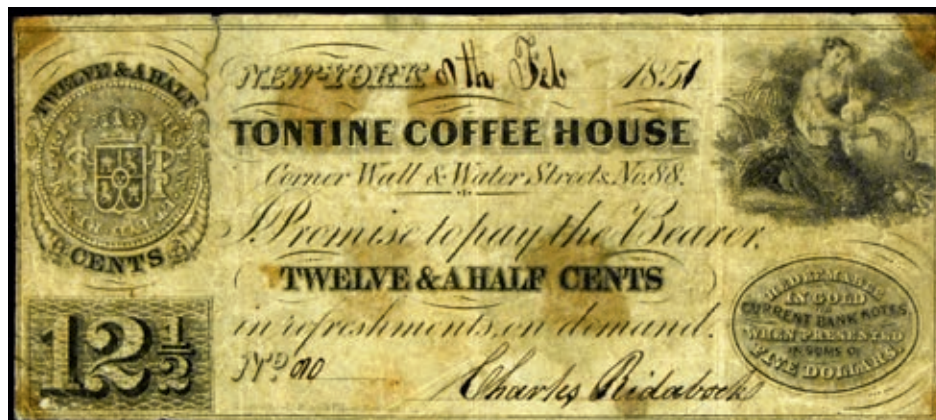 TWELVE & A HALF
CENTS
NEW-YORK 9th Feb 1851
TONTINE COFFEE HOUSE
Corner Wall & Water Streets, No. 88.
I Promise to pay the Bearer,
TWELVE & A HALF CENTS
in refreshments, on demand.
12 1/2
No
Charles Ridabock
REDEEMABLE
IN GOLD
OR
CURRENT BANK NOTES
WHEN PRESENTED
IN SUMS OF
FIVE DOLLARS.